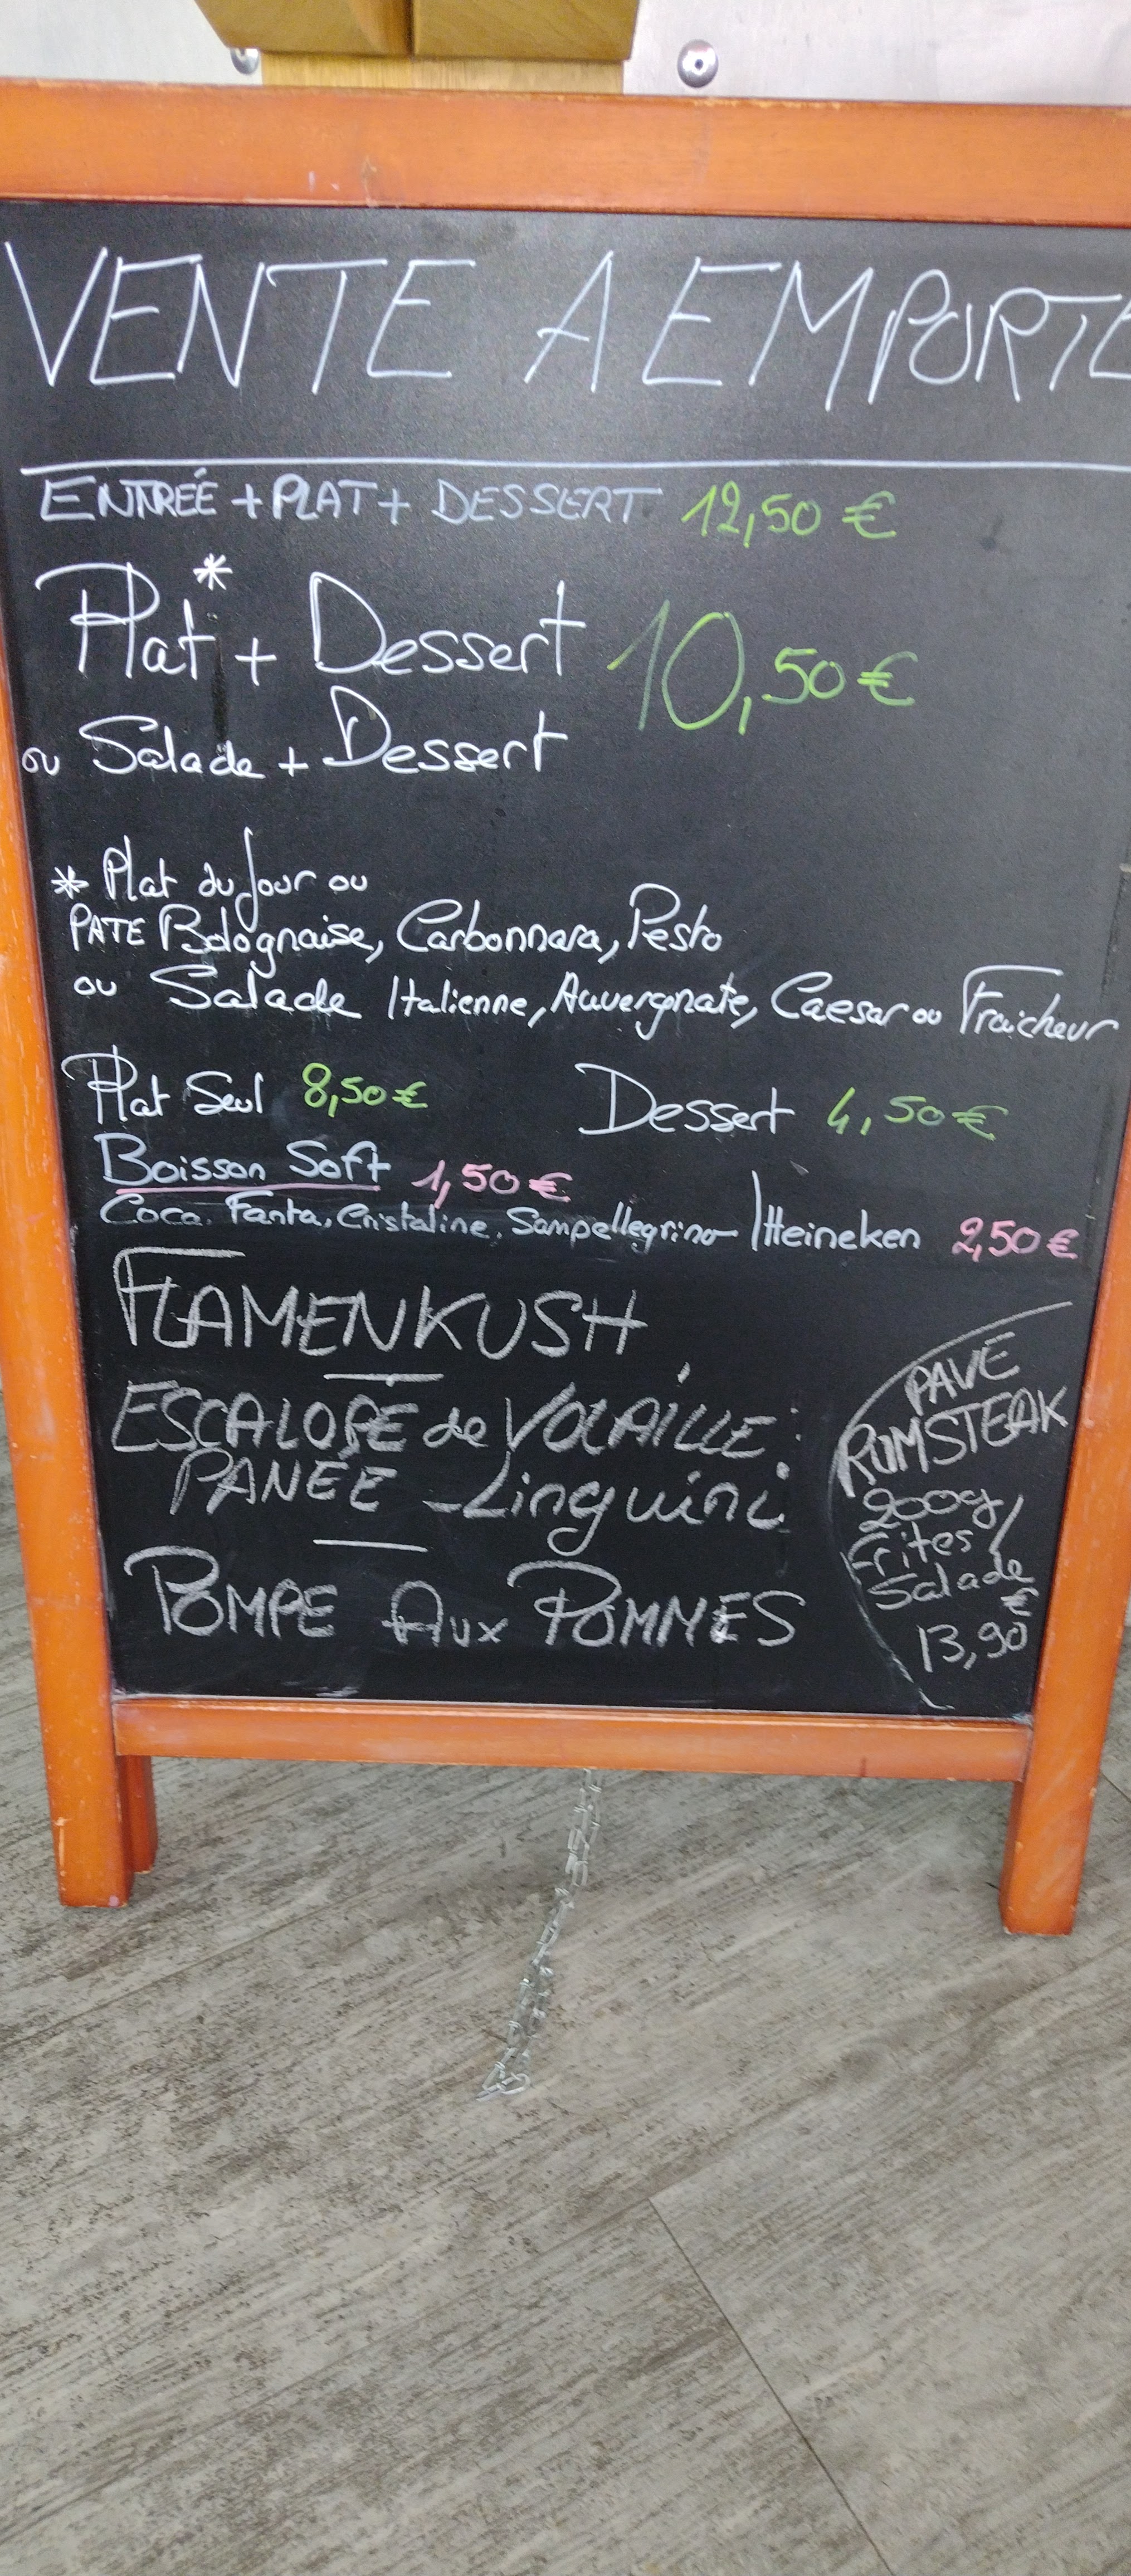 VENTE A EMPORTE
ENTREÉ + PLAT + DESSERT 12,50 €
Plat* + Dessert 10,50 €
ou Salade + Dessert
* Plat du Jour ou
PATE Bolognaise, Carbonnara, Pesto
ou Salade Italienne, Auvergnate, Caesar ou Fraicheur
Plat Seul 8,50 € Dessert 4,50 €
Boisson Soft 1,50 €
Coca, Fanta, Cristaline, Sampellegrino / Heineken 2,50 €
FLAMENKUSH
ESCALOPE de VOLAILLE
PANÉE - Linguini
POMPE AUX POMMES
PAVE
RUMSTEAK
200g /
Frites /
Salade
€
13,90